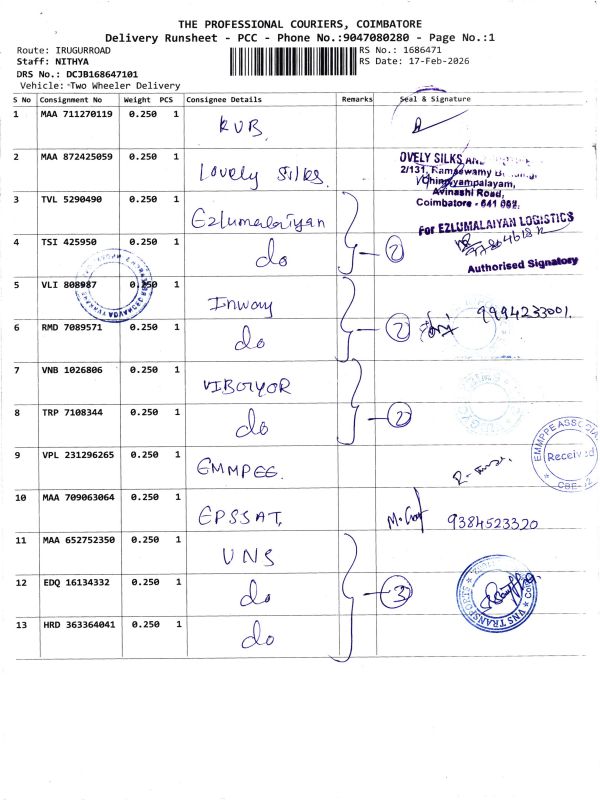 THE PROFESSIONAL COURIERS, COIMBATORE
Delivery Runsheet - PCC - Phone No.:9047080280 - Page No.:1
Route: IRUGURROAD
RS No.: 1686471
Staff: NITHYA
RS Date: 17-Feb-2026
DRS No.: DCJB168647101
Vehicle: Two Wheeler Delivery
S No Consignment No Weight PCS Consignee Details Remarks Seal & Signature
1 MAA 711270119 0.250 1 KVB
2 MAA 872425059 0.250 1 Lovely Silks
OVELY SILKS AND
2/131, Ramaswamy
Chinniyampalayam,
Avinashi Road,
Coimbatore - 641 062.
3 TVL 5290490 0.250 1 Ezlumalaiyan
For EZLUMALAIYAN LOGISTICS
4 TSI 425950 0.250 1 do 2
Authorised Signatory
5 VLI 808987 0.250 1 Inway
9994233001.
6 RMD 7089571 0.250 1 do 2
7 VNB 1026806 0.250 1 VIBGYOR
8 TRP 7108344 0.250 1 do 2
9 VPL 231296265 0.250 1 EMMPEE
EMMPPE ASSOCIA
Received
CBE-
10 MAA 709063064 0.250 1 EPSSAT
9384523320
11 MAA 652752350 0.250 1 VNS
12 EDQ 16134332 0.250 1 do 3
VNS TRANSPORTS
13 HRD 363364041 0.250 1 do